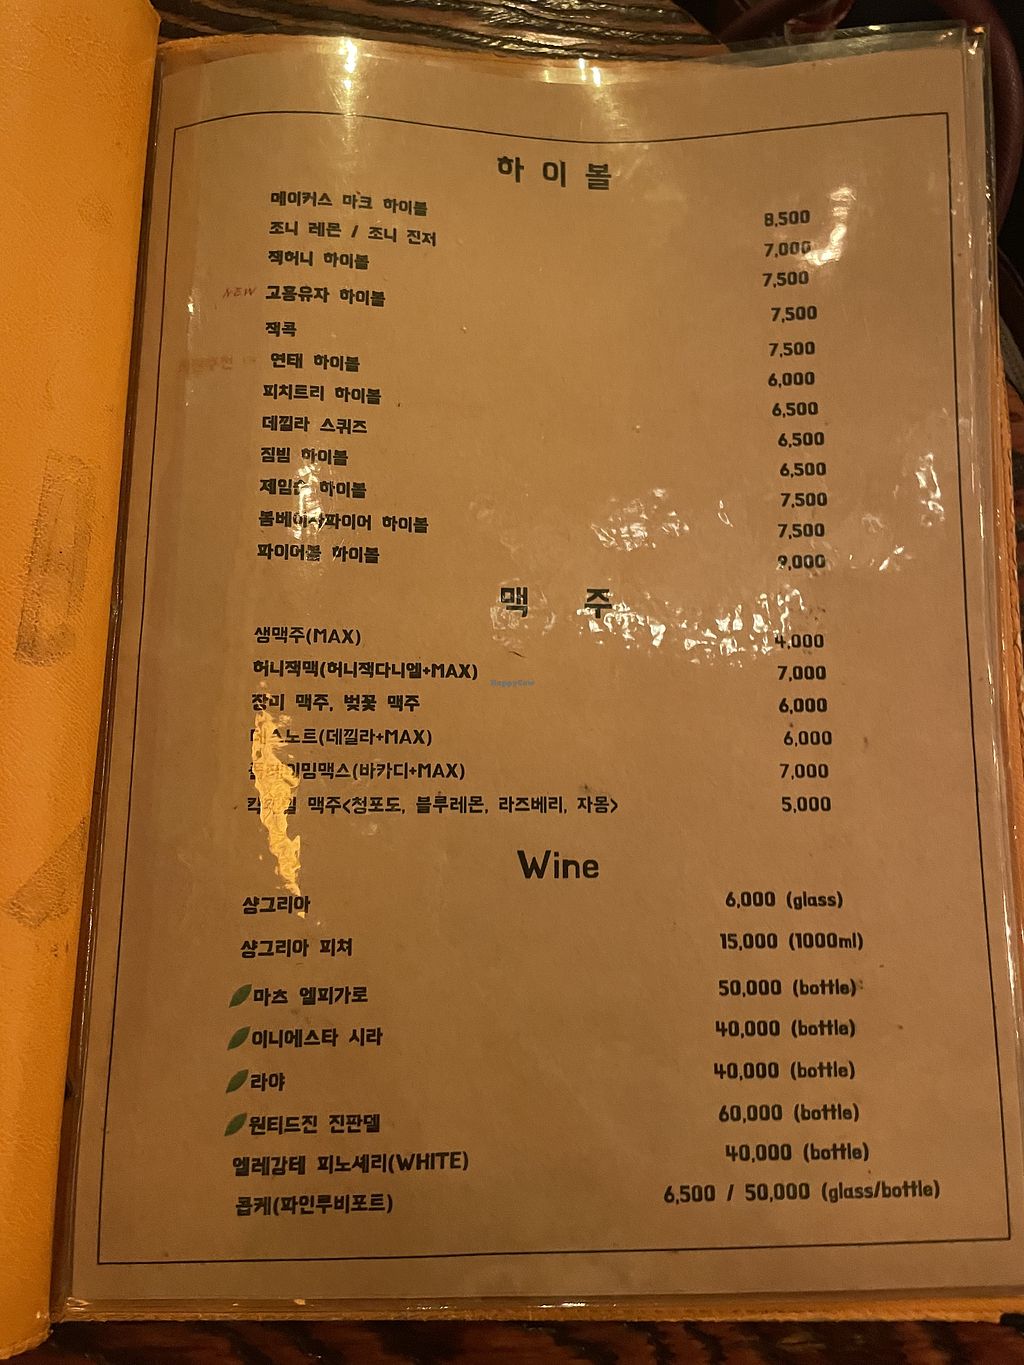 하이볼
메이커스 마크 하이볼 8,500
조니 레몬 / 조니 진저 7,000
잭허니 하이볼 7,500
NEW 고흥유자 하이볼 7,500
잭콕 7,500
연태 하이볼 6,000
피치트리 하이볼 6,500
데낄라 스퀴즈 6,500
짐빔 하이볼 6,500
제임슨 하이볼 7,500
봄베이사파이어 하이볼 7,500
파이어볼 하이볼 9,000
맥 주
생맥주(MAX) 4,000
허니잭맥(허니잭다니엘+MAX) 7,000
장미 맥주, 벚꽃 맥주 6,000
데스노트(데낄라+MAX) 6,000
(바카디+MAX) 7,000
칵테일 맥주<청포도, 블루레몬, 라즈베리, 자몽> 5,000
HappyCow
Wine
샹그리아 6,000 (glass)
샹그리아 피쳐 15,000 (1000ml)
마츠 엘피가로 50,000 (bottle)
이니에스타 시라 40,000 (bottle)
라야 40,000 (bottle)
원티드진 진판델 60,000 (bottle)
엘레강테 피노셰리(WHITE) 40,000 (bottle)
콥케(파인루비포트) 6,500 / 50,000 (glass/bottle)